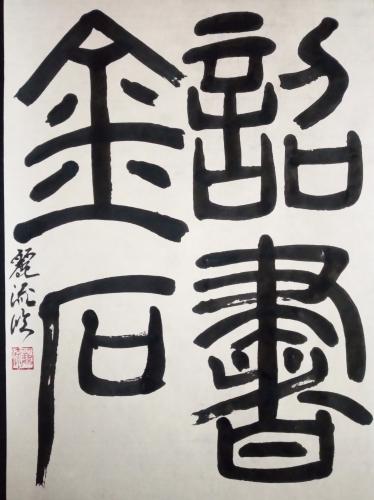 詔書
金石
麗流臨